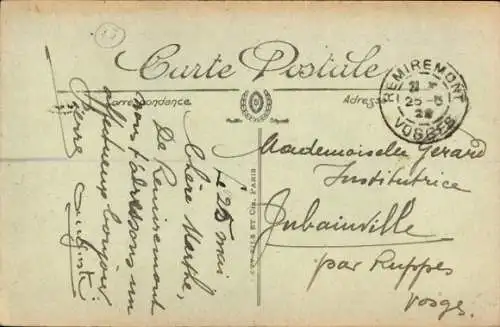 Carte Postale
Correspondance
Adresse
REMIREMONT
25-5
VOSGES
Le 25 mai
Chère Marthe,
De Remiremont
nous t'adressons un
affectueux bonjour
Pierre
Mademoiselle Gérard
Institutrice
Jubainville
par Ruppes
Vosges.
PARIS